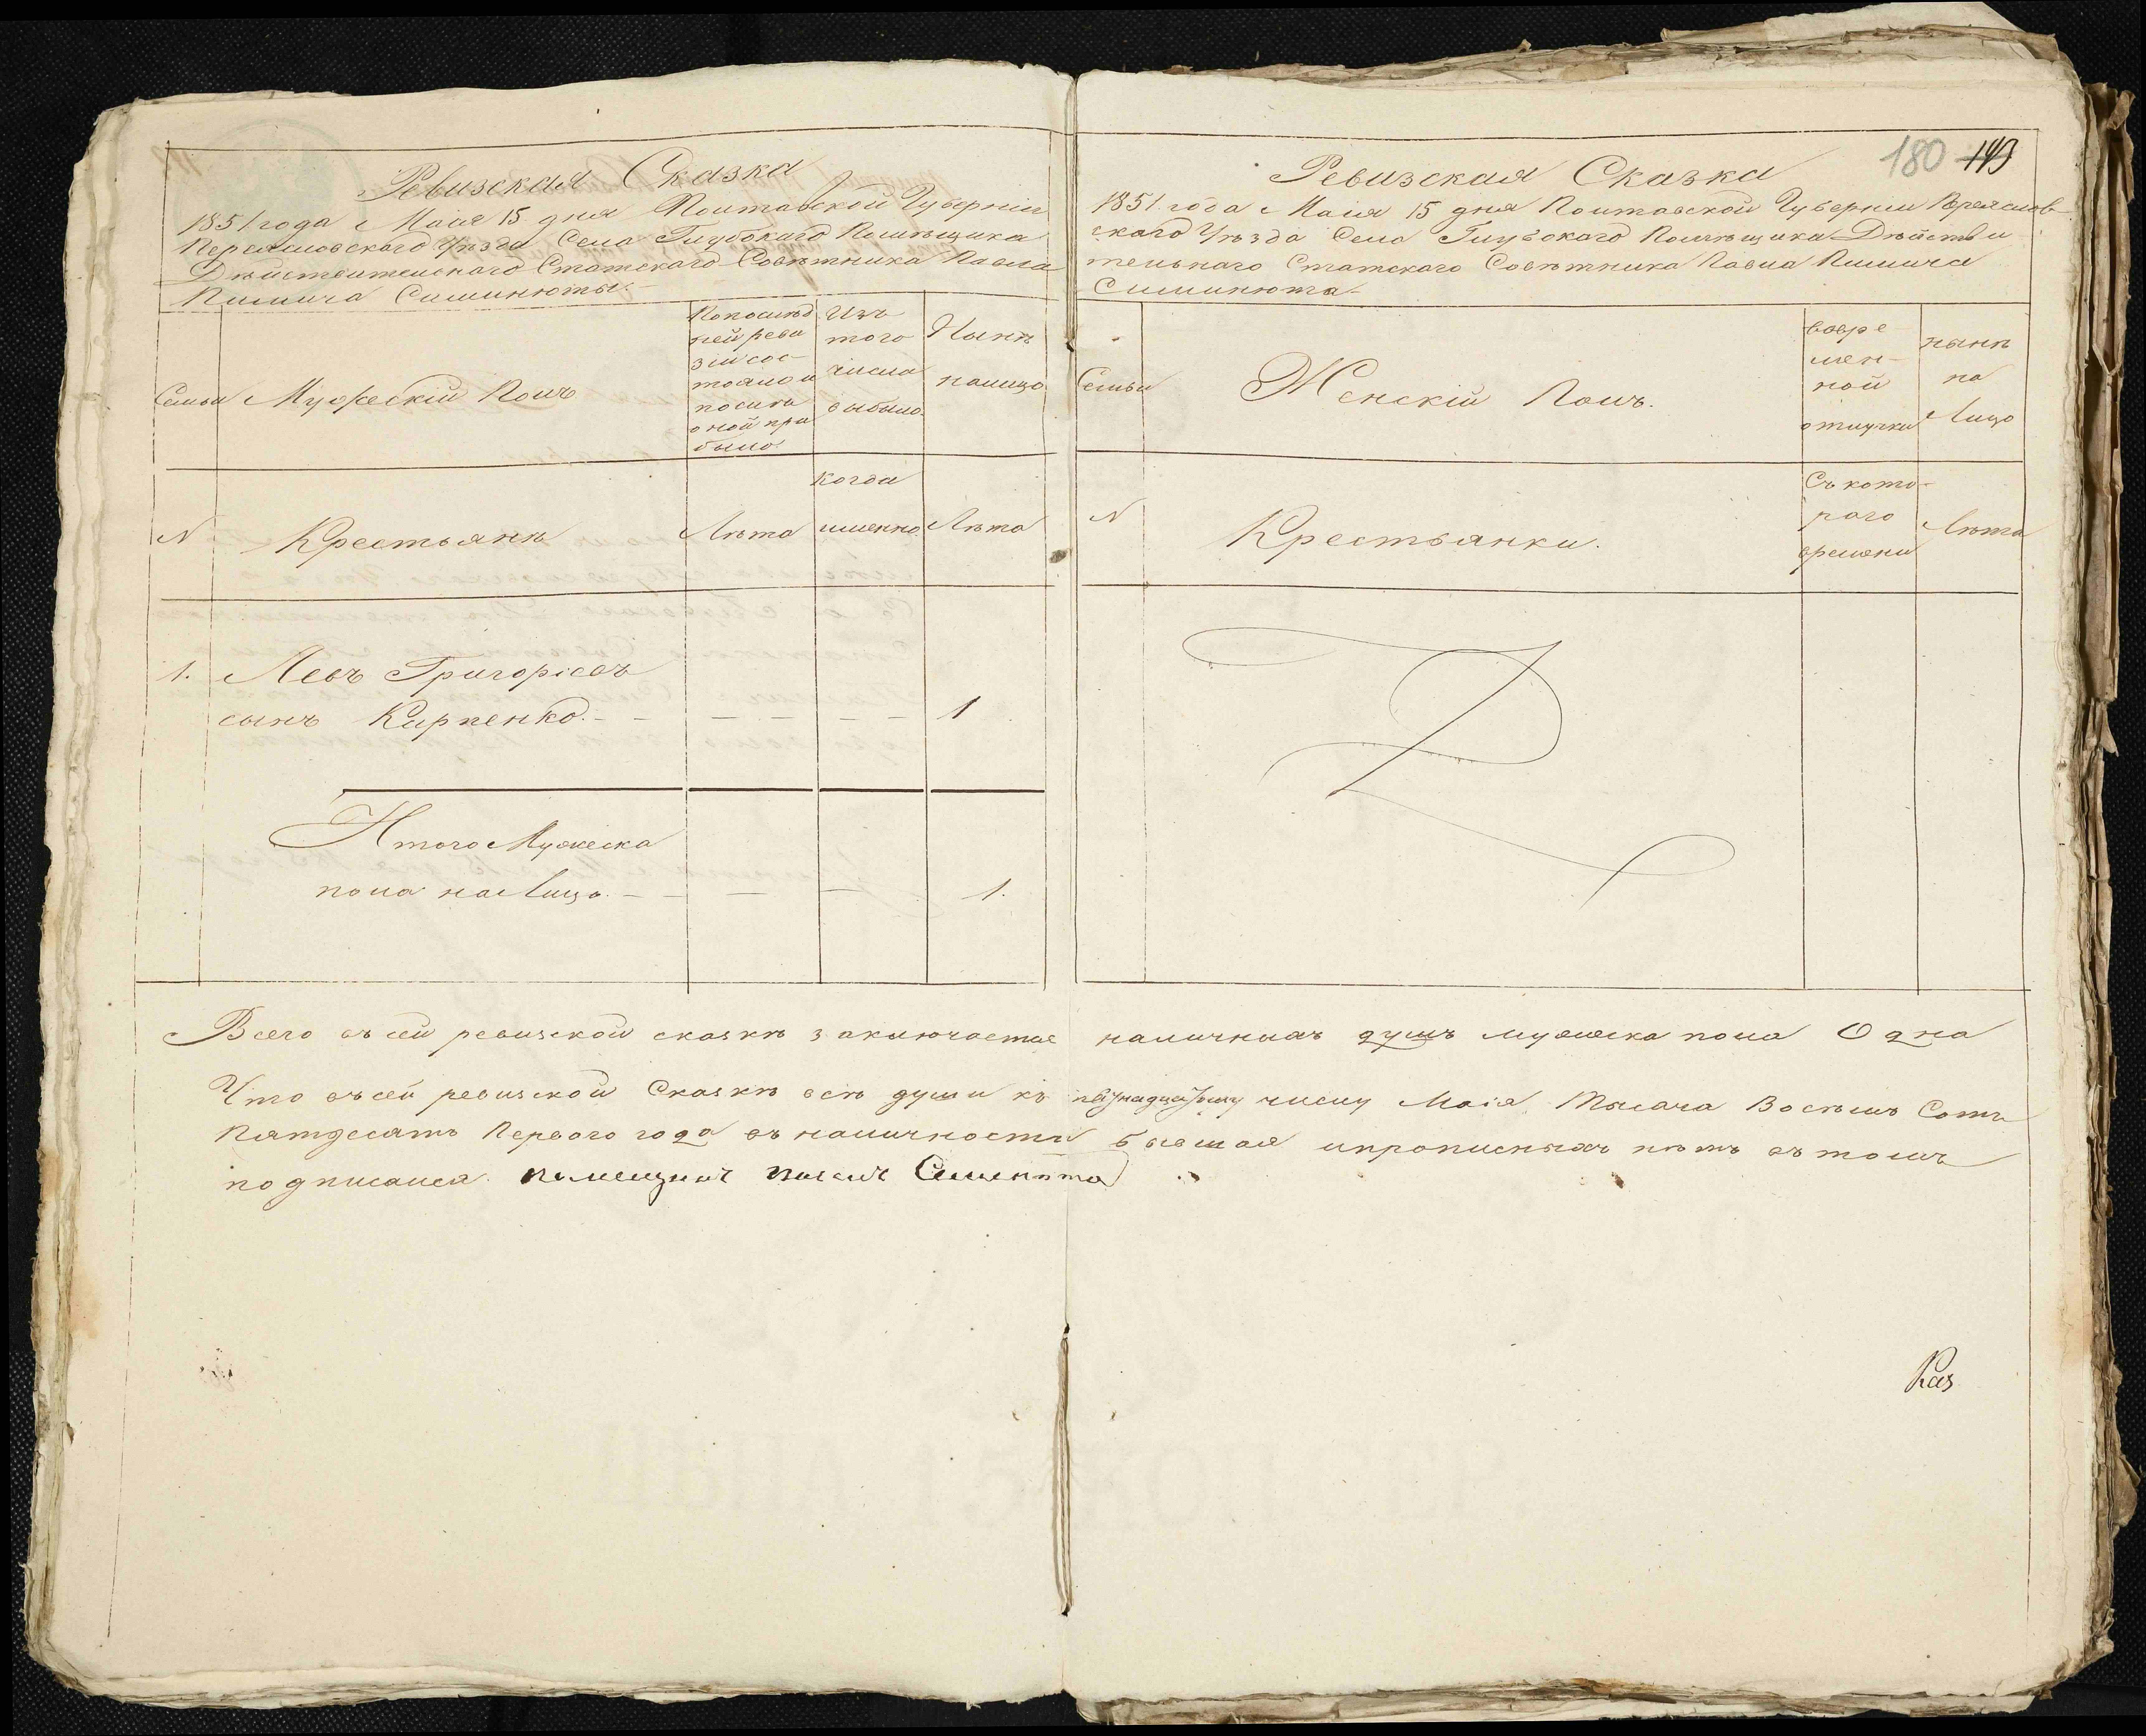 Ревизская Сказка
1851 года Маия 15 дня Полтавской Губерніи
Переясловского Уѣзда Села Глубокаго Помѣщика
Дѣйствительнаго Статскаго Совѣтника Павла
Симинюты.
Семьи
Мужескій Полъ
По послѣд
ней реви
зіи сос
тояло и
послѣ
оной при
было
Изъ
того
числа
выбыло
Нынѣ
налицо
N
Крестьянѣ
Лѣта
когда
именно
Лѣта
1. Левъ Григоріевъ
сынъ Карпенко. - - - - - - - 1
Итого Мужеска
пола на Лицо. - - - - 1.
180 143
Ревизская Сказка
1851 года Маия 15 дня Полтавской Губерніи Переяслов
скаго Уѣзда Села Глубокаго Помѣщика Дѣйстви
тельнаго Статскаго Совѣтника Павла
Симинюта
Семьи
Женскій Полъ.
вовре
мен
ной
отлучки
нынѣ
на
Лицо
N
Крестьянки.
Съ кото-
раго
времени
Лѣта
Всего въ сей ревизской сказкѣ заключается наличныхъ душъ мужеска пола Одна
Что въ сей ревизской Сказкѣ всѣ души къ пятнадцатому числу Маія Тысяча Восѣмъ Сотъ
Пятдесятъ Перваго года въ наличности бывшая ипрописныхъ нѣтъ въ томъ
подписался помещикъ Павелъ Симинюта
Каз